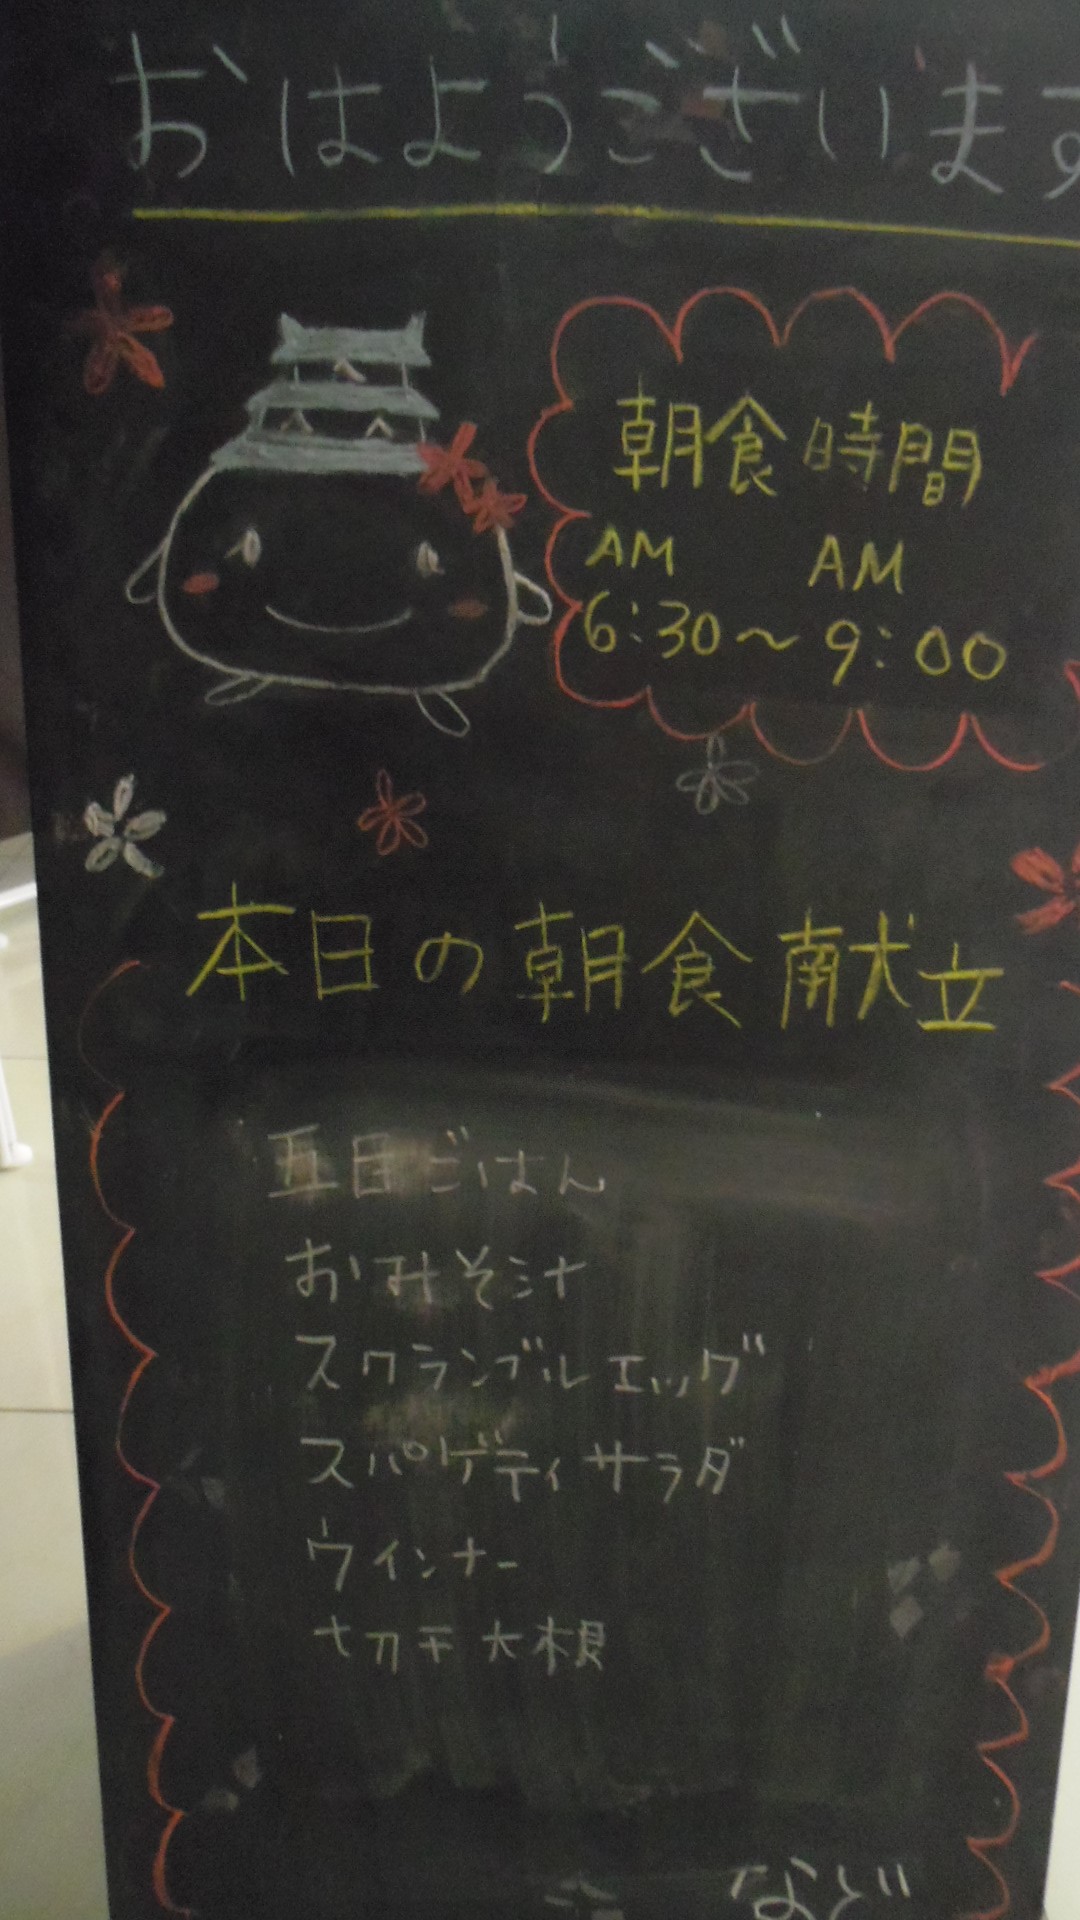 おはようございます
朝食時間
AM AM
6:30～9:00
本日の朝食献立
五目ごはん
おみそ汁
スクランブルエッグ
スパゲティサラダ
ウインナー
切干大根
など